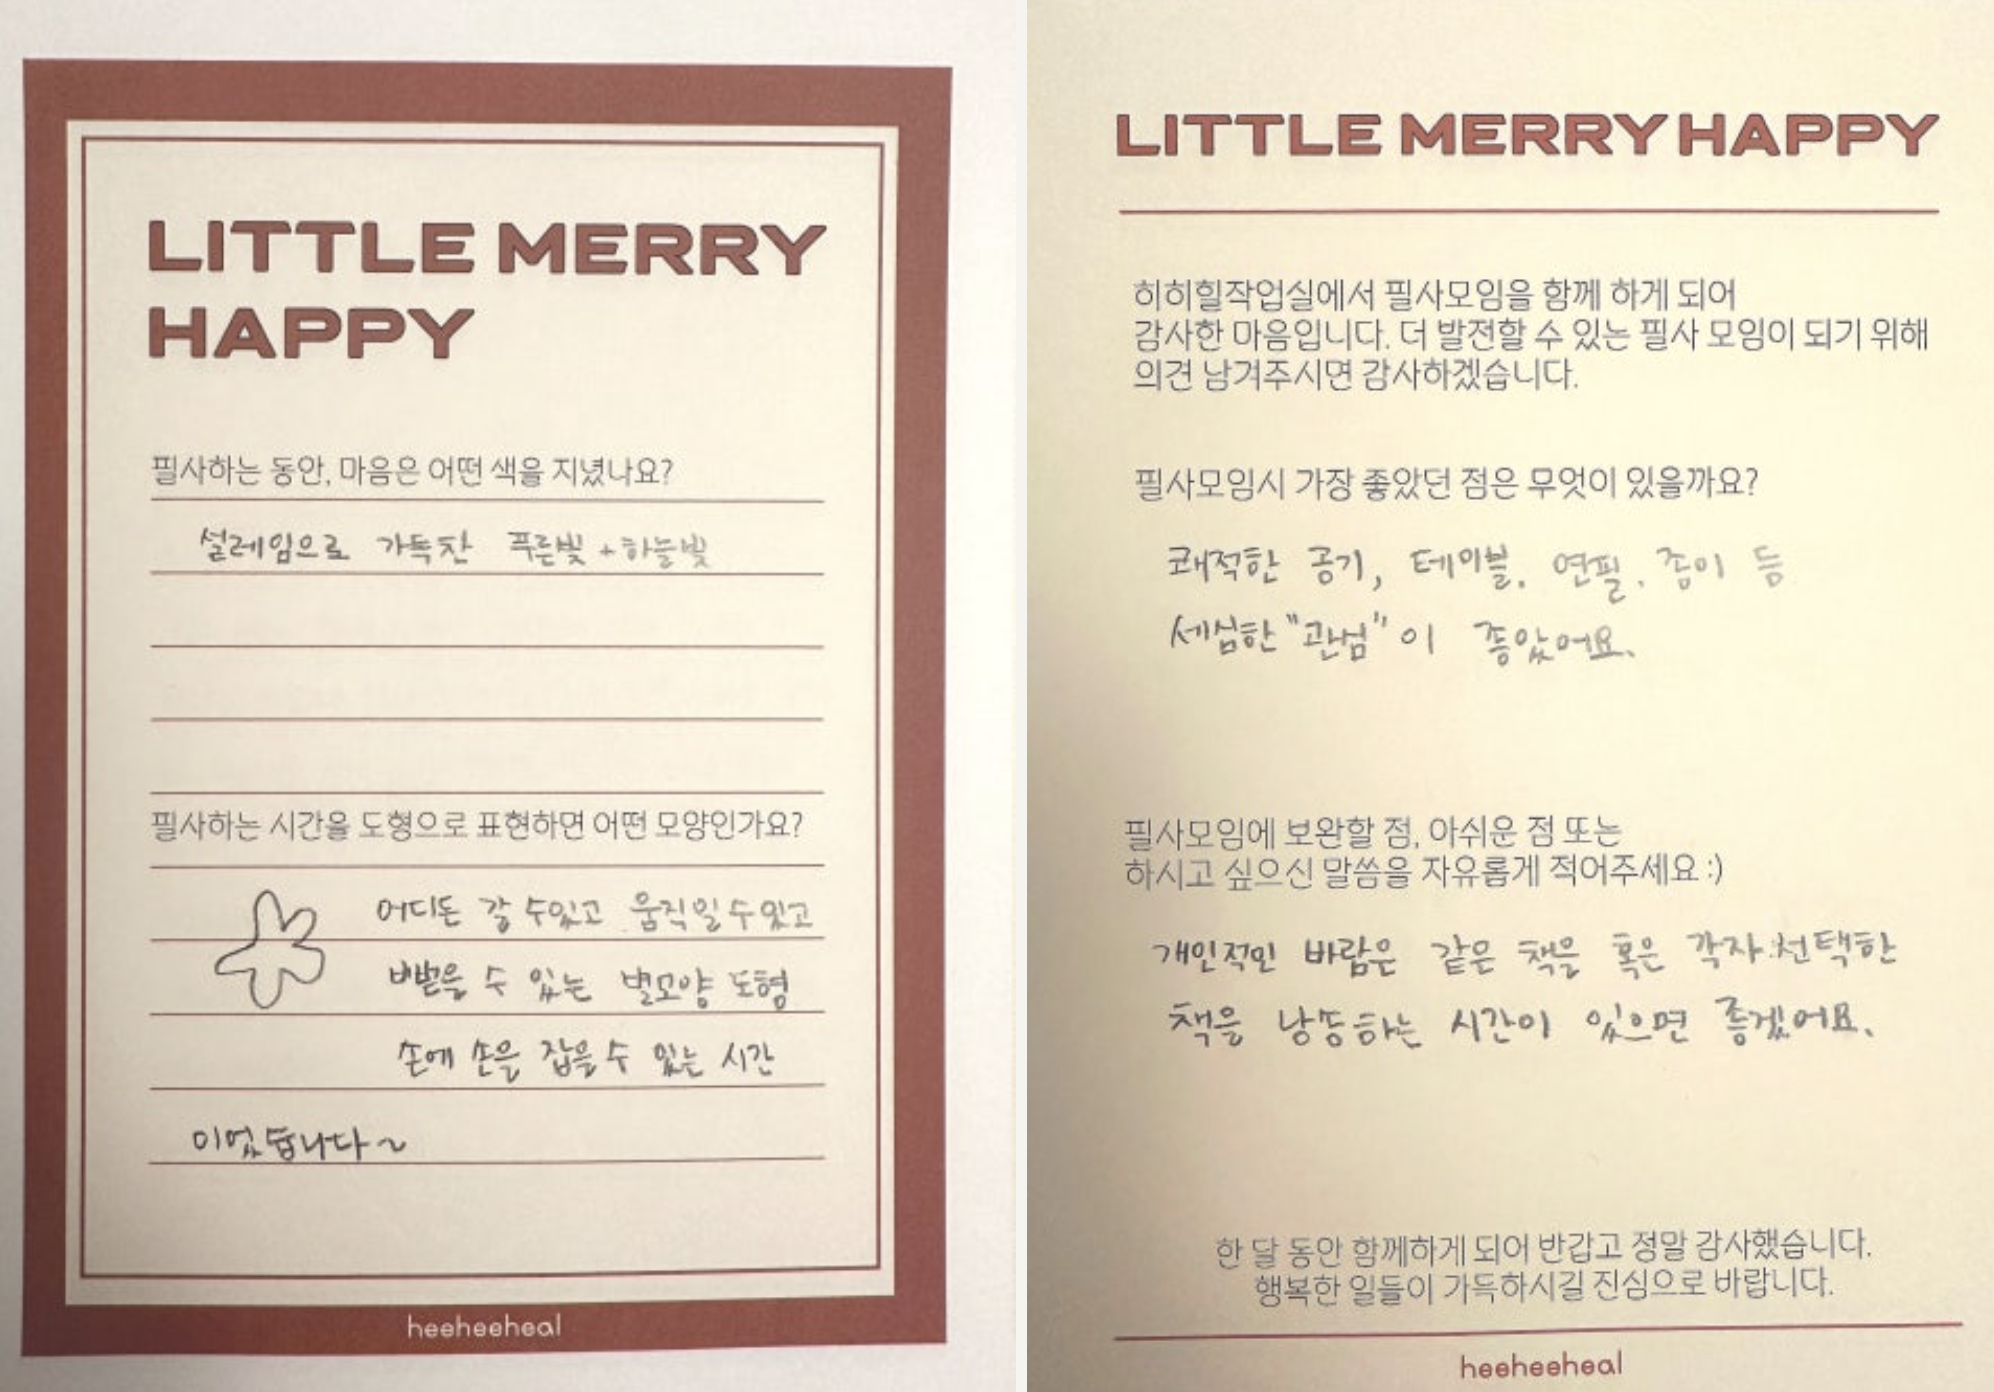 LITTLE MERRY
HAPPY
필사하는 동안, 마음은 어떤 색을 지녔나요?
설레임으로 가득찬 푸른빛 + 하늘빛
필사하는 시간을 도형으로 표현하면 어떤 모양인가요?
어디든 갈 수있고 움직일 수 있고
뻗을 수 있는 별모양 도형
손에 손을 잡을 수 있는 시간
이었습니다~
heeheeheal
LITTLE MERRY HAPPY
히히힐작업실에서 필사모임을 함께 하게 되어
감사한 마음입니다. 더 발전할 수 있는 필사 모임이 되기 위해
의견 남겨주시면 감사하겠습니다.
필사모임시 가장 좋았던 점은 무엇이 있을까요?
쾌적한 공기, 테이블, 연필, 종이 등
세심한 "관섬" 이 좋았어요.
필사모임에 보완할 점, 아쉬운 점 또는
하시고 싶으신 말씀을 자유롭게 적어주세요 :)
개인적인 바람은 같은 책을 혹은 각자 선택한
책을 낭동하는 시간이 있으면 좋겠어요.
한 달 동안 함께하게 되어 반갑고 정말 감사했습니다.
행복한 일들이 가득하시길 진심으로 바랍니다.
heeheeheal